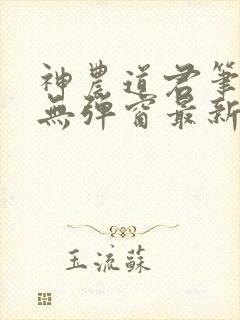 神農道君筆
無彈窗最新
玉流蘇